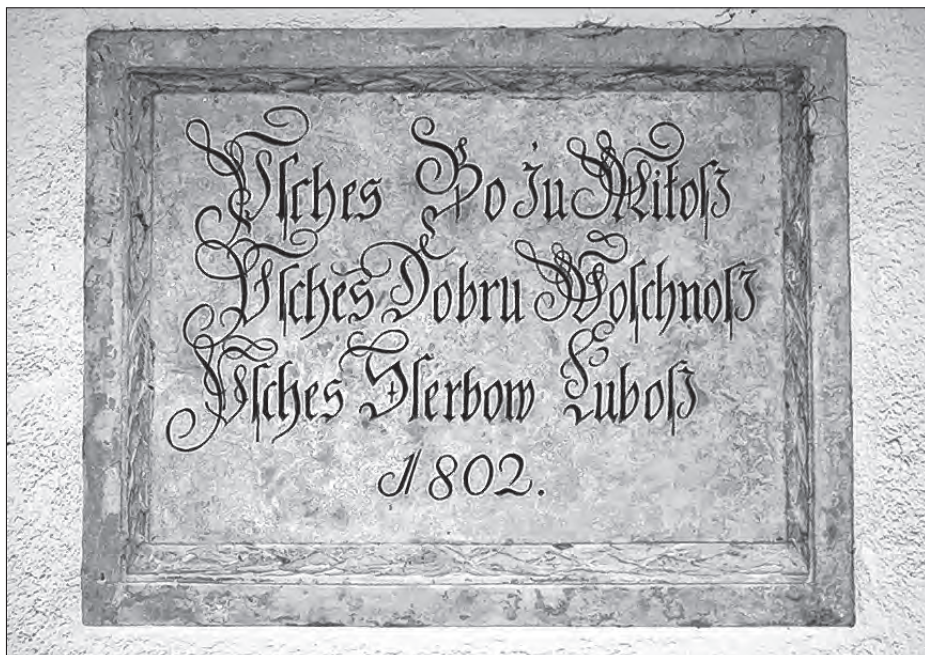 Pſches Bo żu Miłoſz
Pſches Dobru Woſchnoſz
Pſches Sſerbow Luboſz
1802.